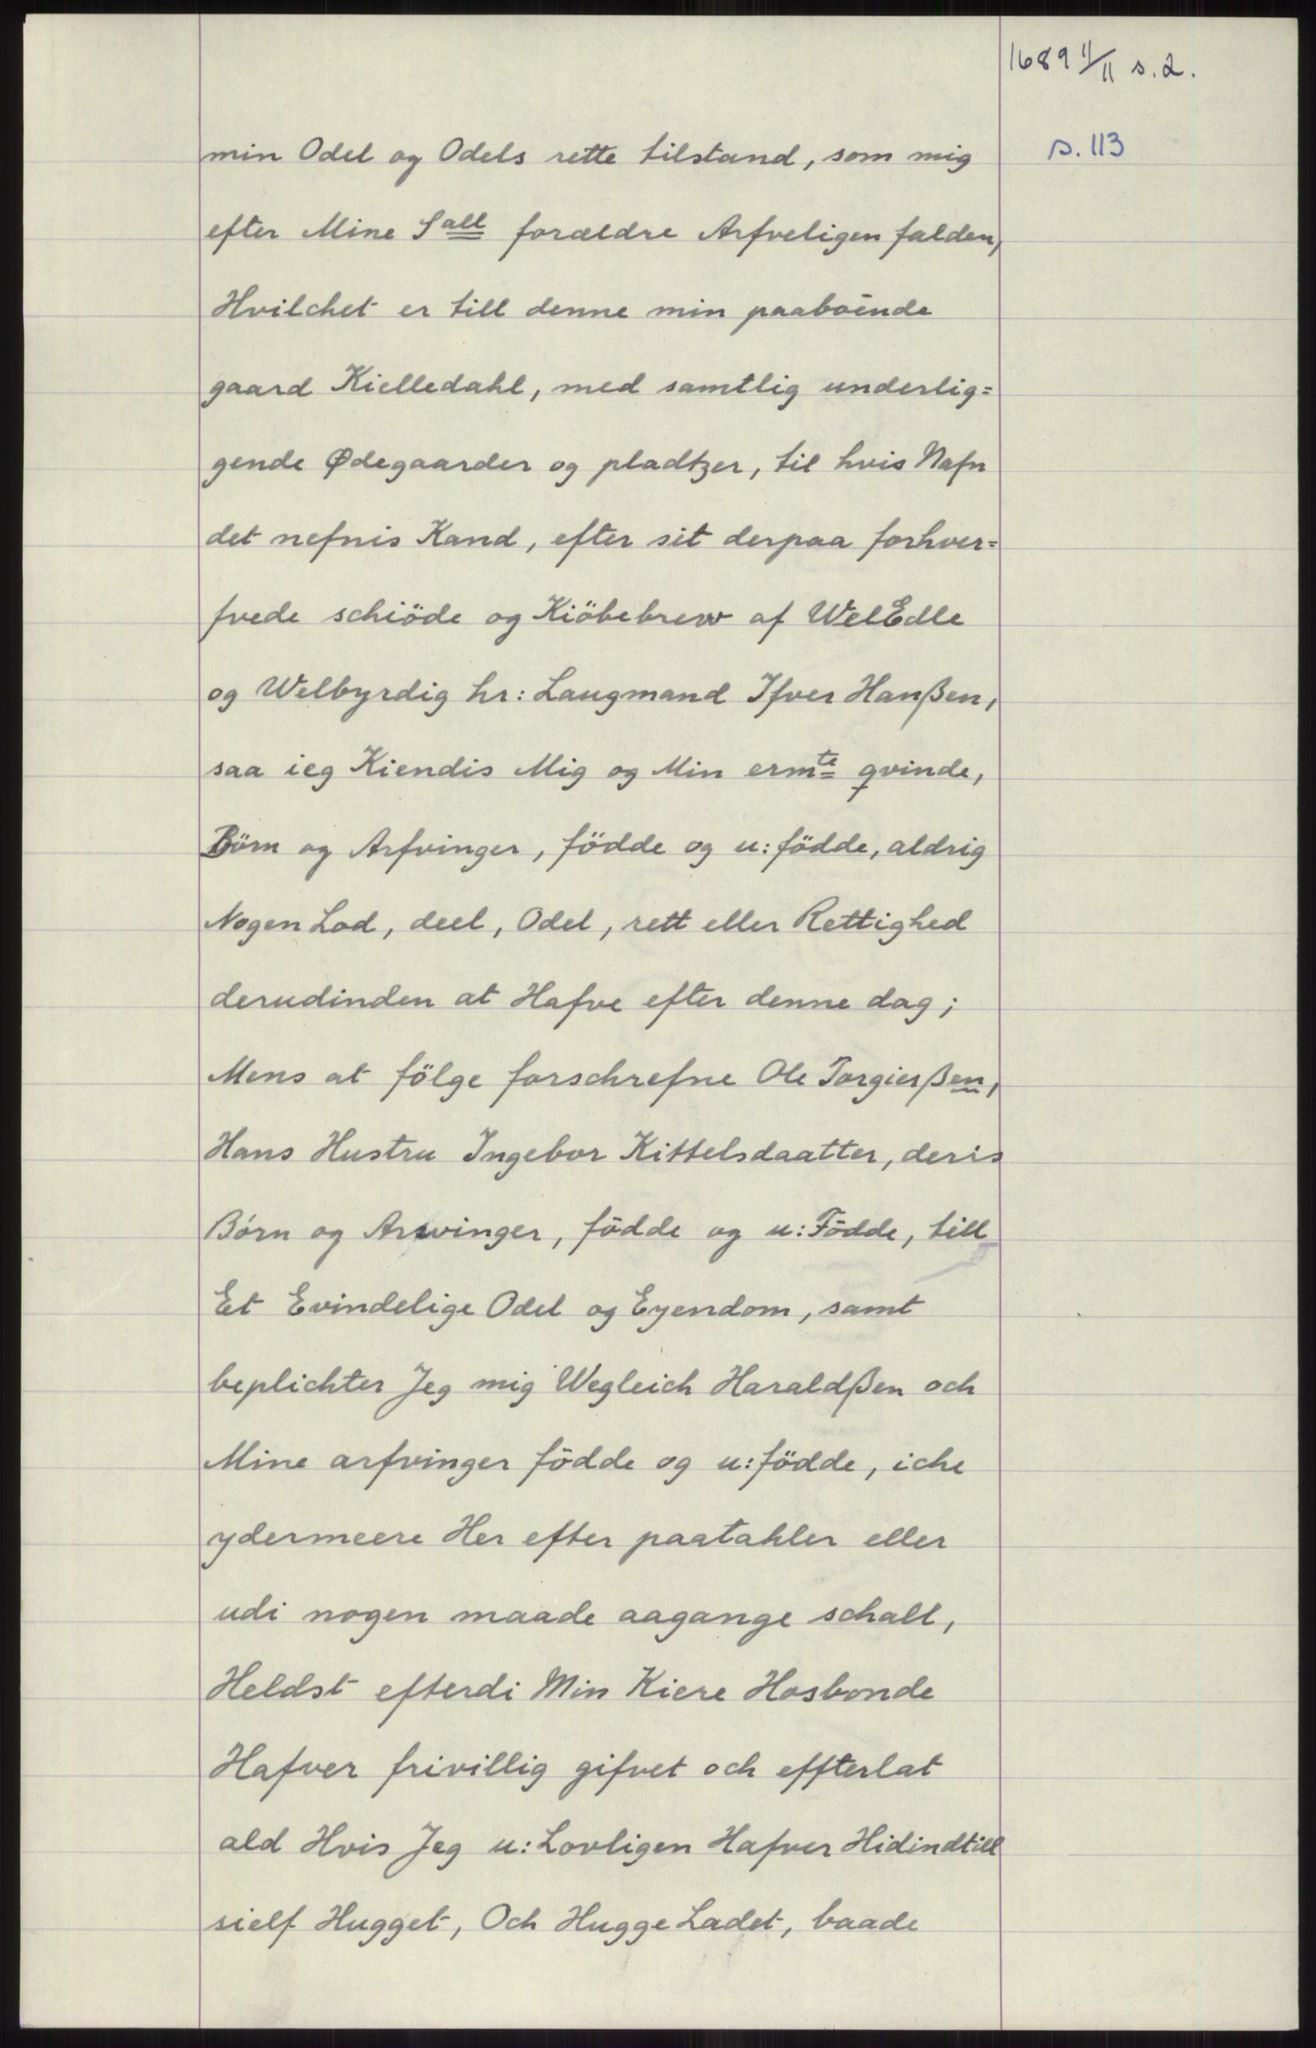 1689 11/11 s. 2.
s. 113
min Odel og Odels rette tilstand, som mig
efter Mine Sall forældre Arfveligen falden,
Hvilchet er till denne min paaboënde
gaard Kielledahl, med samtlig underlig=
gende Ødegaarder og pladtzer, til hvis Nafn
det nefnis Kand, efter sit derpaa forhver=
fvede schiöde og Kiöbebrew af WelEdle
og Welbyrdig hr: Laugmand Ifver Hanßen,
saa ieg Kiendis Mig og Min ermte qvinde,
Börn og Arfvinger, födde og u: födde, aldrig
Nogen Lod, deel, Odel, rett eller Rettighed
derudinden at Hafve efter denne dag;
Mens at fölge forschrefne Ole Torgierßen,
Hans Hustru Ingebor Kittelsdaatter, deris
Börn og Arwinger, födde og u: Födde, till
Et Evindelige Odel og Eyendom, samt
beplichter Jeg mig Wegleich Haraldßen och
Mine arfvinger födde og u: födde, iche
ydermeere Her efter paatahler eller
udi nogen maade aagange schall,
Heldst efterdi Min Kiere Hosbonde
Hafver frivillig gifvet och effterlat
ald Hvis Jeg u: Lovligen Hafver Hidindtill
sielf Hugget, Och Hugge Ladet, baade